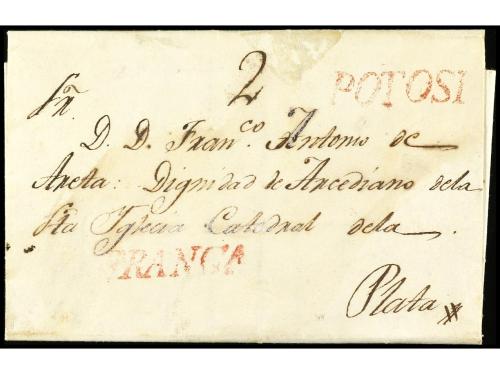 2 POTOSI
Sr̃.
D. D. Fran.co Antonio de
Areta: Dignidad de Arcediano dela
Sta Iglecia Catedral dela
FRANCA
Plata